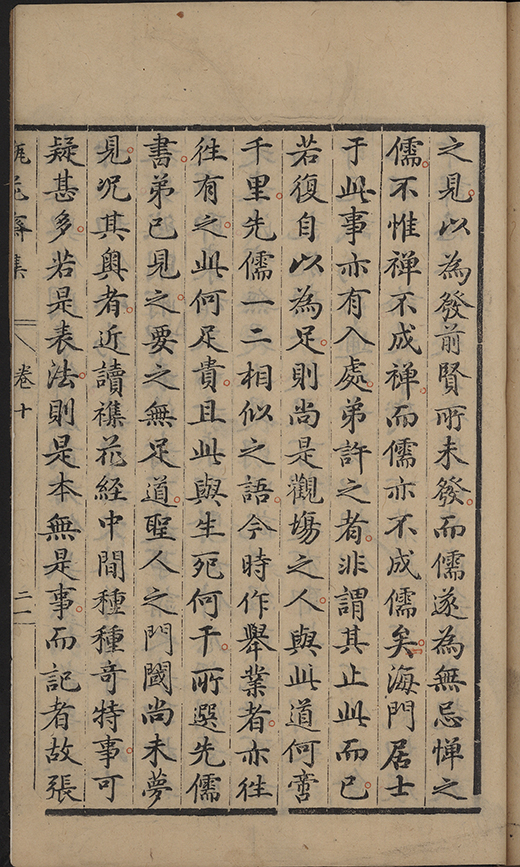 之見以為發前賢所未發而儒遂為無忌憚之
儒不惟禅不成禅而儒亦不成儒矣海門居士
于此事亦有入處弟許之者非謂其止此而已
若復自以為足則尚是觀場之人與此道何啻
千里先儒一二相似之語今時作舉業者亦往
往有之此何足貴且此與生死何干所選先儒
書弟已見之要之無足道聖人之門閫尚未夢
見况其奥者近讀襍花经中間種種奇特事可
疑甚多若是表法則是本無是事而記者故張
瓶花齋集 卷十 二一